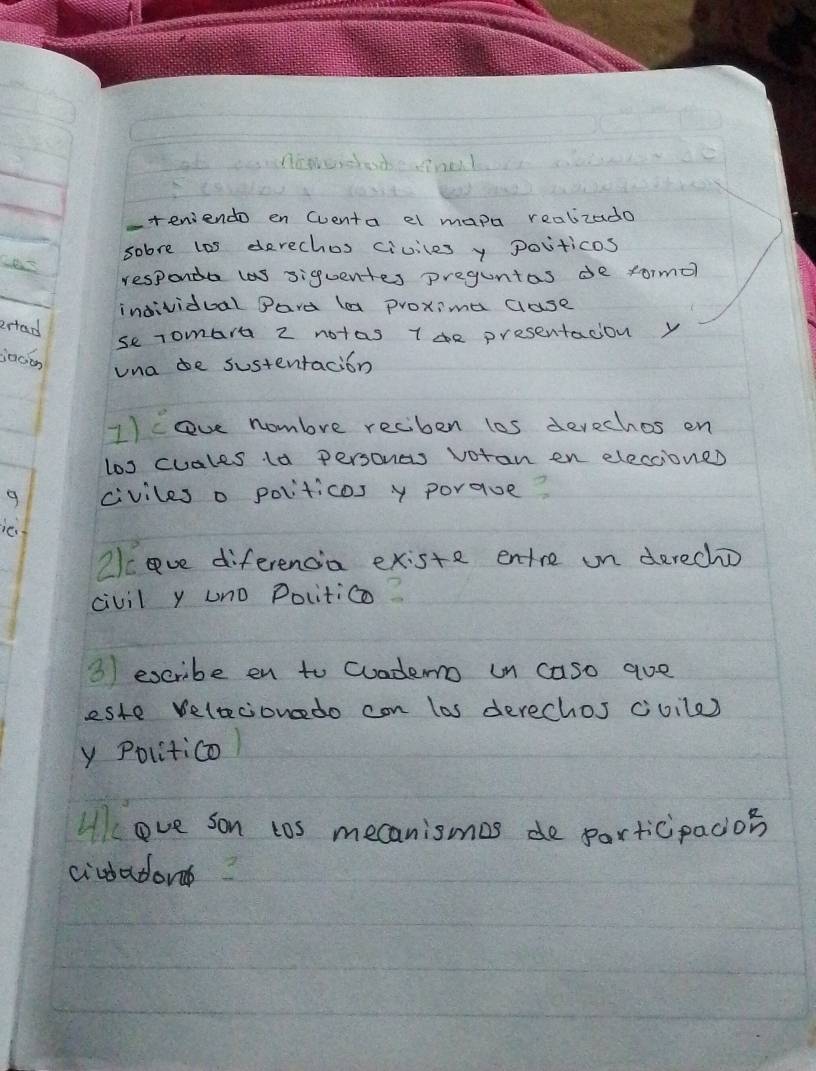 Actividad final
-teniendo en cuenta el mapa realizado
sobre los derechos civiles y politicos
responda las siguentes preguntas de forma
individual Para la proxima clase
se tomara 2 notas 1 de presentacion y
una de sustentación
1) ¿Que nombre reciben los derechos en
los cuales la personas votan en elecciones
civiles o politicos y porque?
2) ¿que diferencia existe entre un derecho
civil y uno Politico?
3) escribe en tu cuaderno un caso que
este relacionado con los derechos civiles
y Politico)
4) ¿Que son los mecanismos de participacion
ciudadana?
ertad
q
ici-